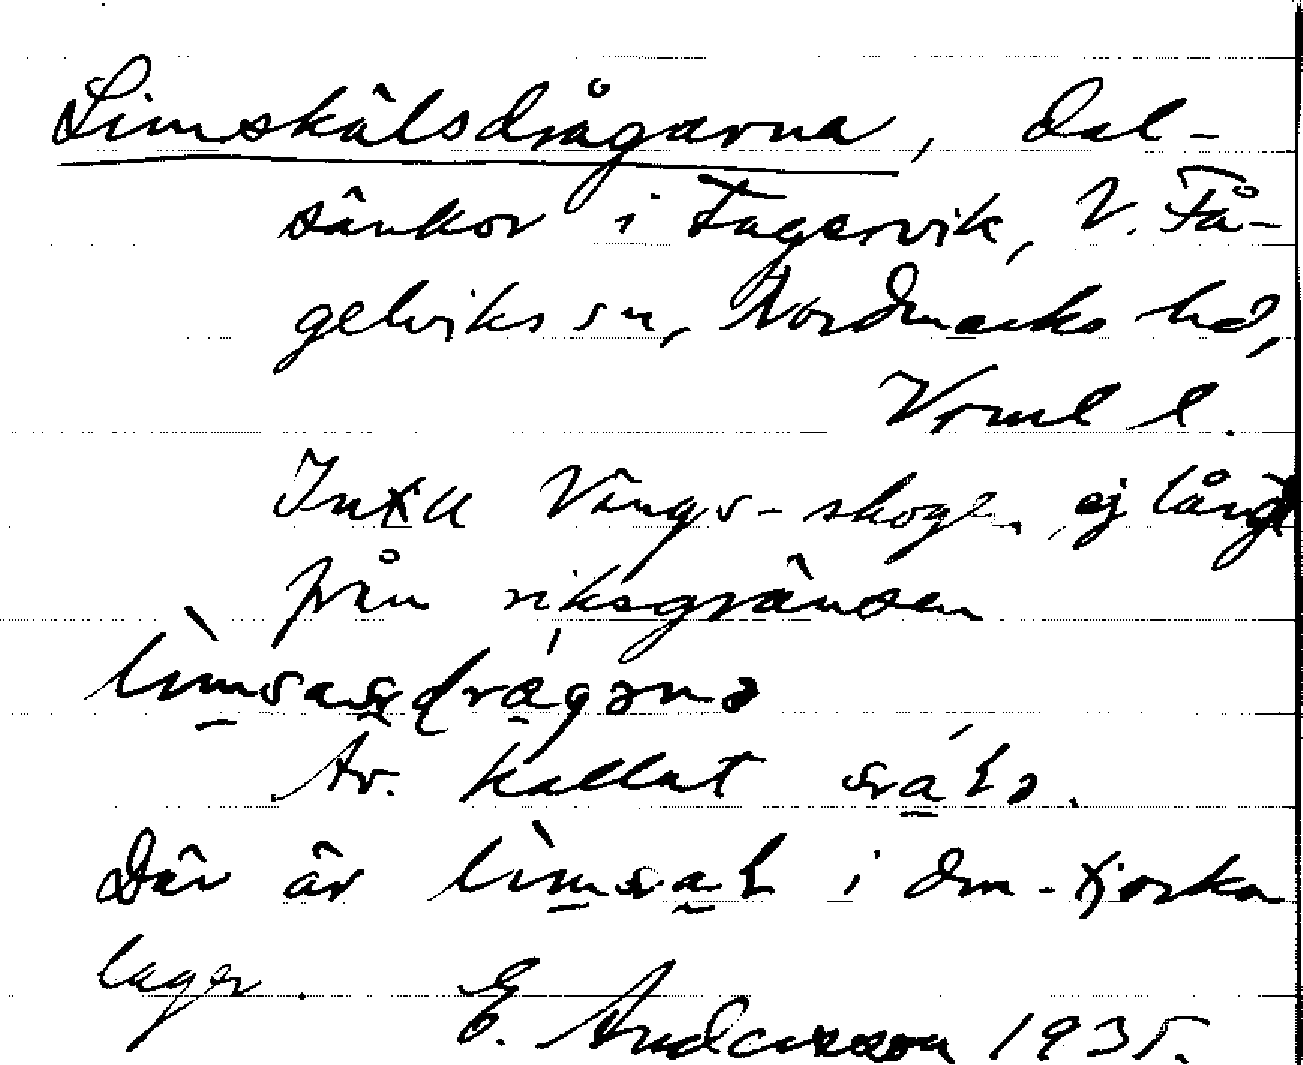 Limskålsdrågarna, dal-
sänkor i Fagervik, V. Få-
gelviks sn, Nordmarks hd,
Vrml l.
Intill Vängs-skogen, ej långt
från riksgränsen
Av. kallat
Där är i dm-tjocka
lager. E. Andersson 1935.